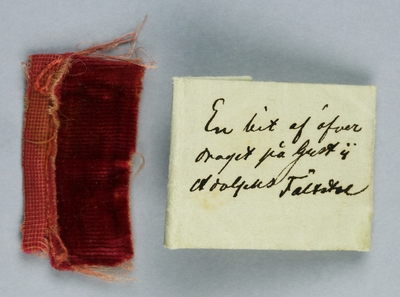 En bit af öfver
draget på Gust ij
Adolphs Fältstol